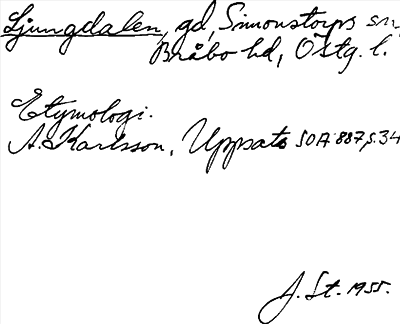 Ljungdalen, gd, Simonstorps sn,
Bråbo hd, Östg. l.
Etymologi.
A. Karlsson, Uppsats SOA 887, s. 34
J. St. 1955.